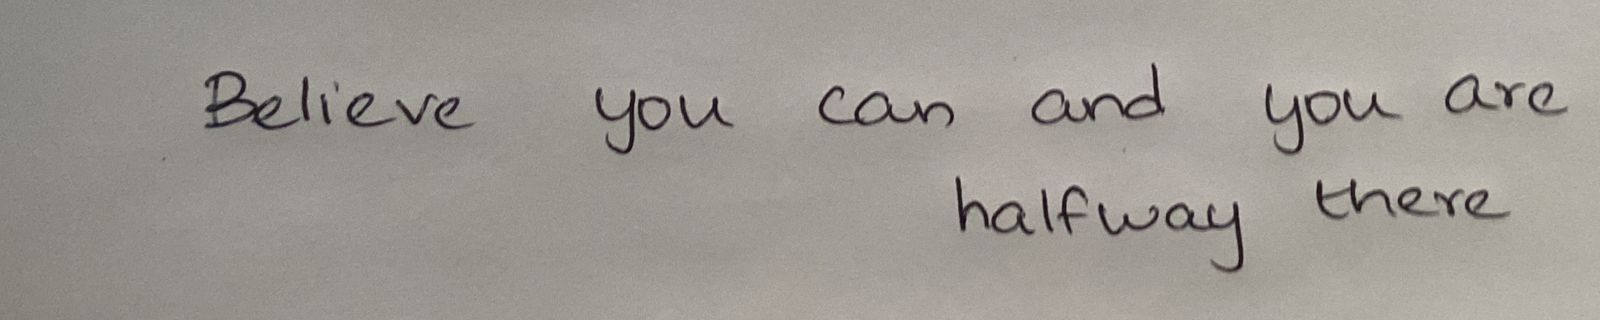 Believe you can and you are
halfway there